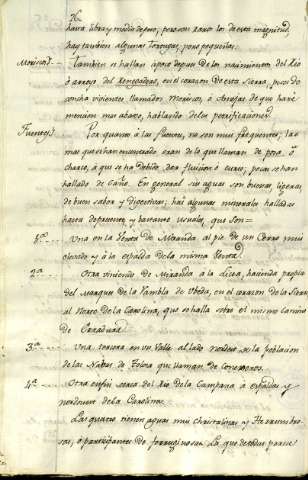 76.
hasta libra y medio de peso, pero son raros los de esta magnitud,
hay tambien algunas Tortugas, pero pequeñas.
Moriscos. Tambien se hallan á poco de los nacimientos del Rio
ó arroyo del Renegadero, en el corazon de esta Sierra, pescado
concha vivientes llamados Moriscos, ó Almejas de que haré
mencion mas abaxo, hablando de las petrificaciones.
Fuentes. Por quanto á las fuentes, no son mui freqüentes; las
mas que se han encontrado eran de la que llaman de poza, ó
charco, á que se ha debido dar fluxion ó curso, pocas se han
hallado de Caño. En general sus aguas son buenas, ligeras,
de buen sabor y digestivas; hai algunas minerales halladas
hasta de presente y bastante usuales, que son =
1ª Una en la Venta de Miranda al pie de un Cerro mui
elevado y á la espalda de la misma Venta.
2ª Otra viniendo de Miranda á la dicha, hacienda propia
del Marques de la Rambla de Ubeda, en el corazon de la Sierra
al Norte de la Carolina, que se halla sobre el mismo camino
de
3ª Una tercera en un Valle al lado nordeste de la poblacion
de las Navas de Tolosa que llaman de
4ª Otra enfin cerca del Rio de la Campana á espaldas y
nordoeste de la Carolina.
Las quatro tienen aguas mui christalinas y Herrumbro-
sas, ó participantes de ferruginosas. La que de todas parece